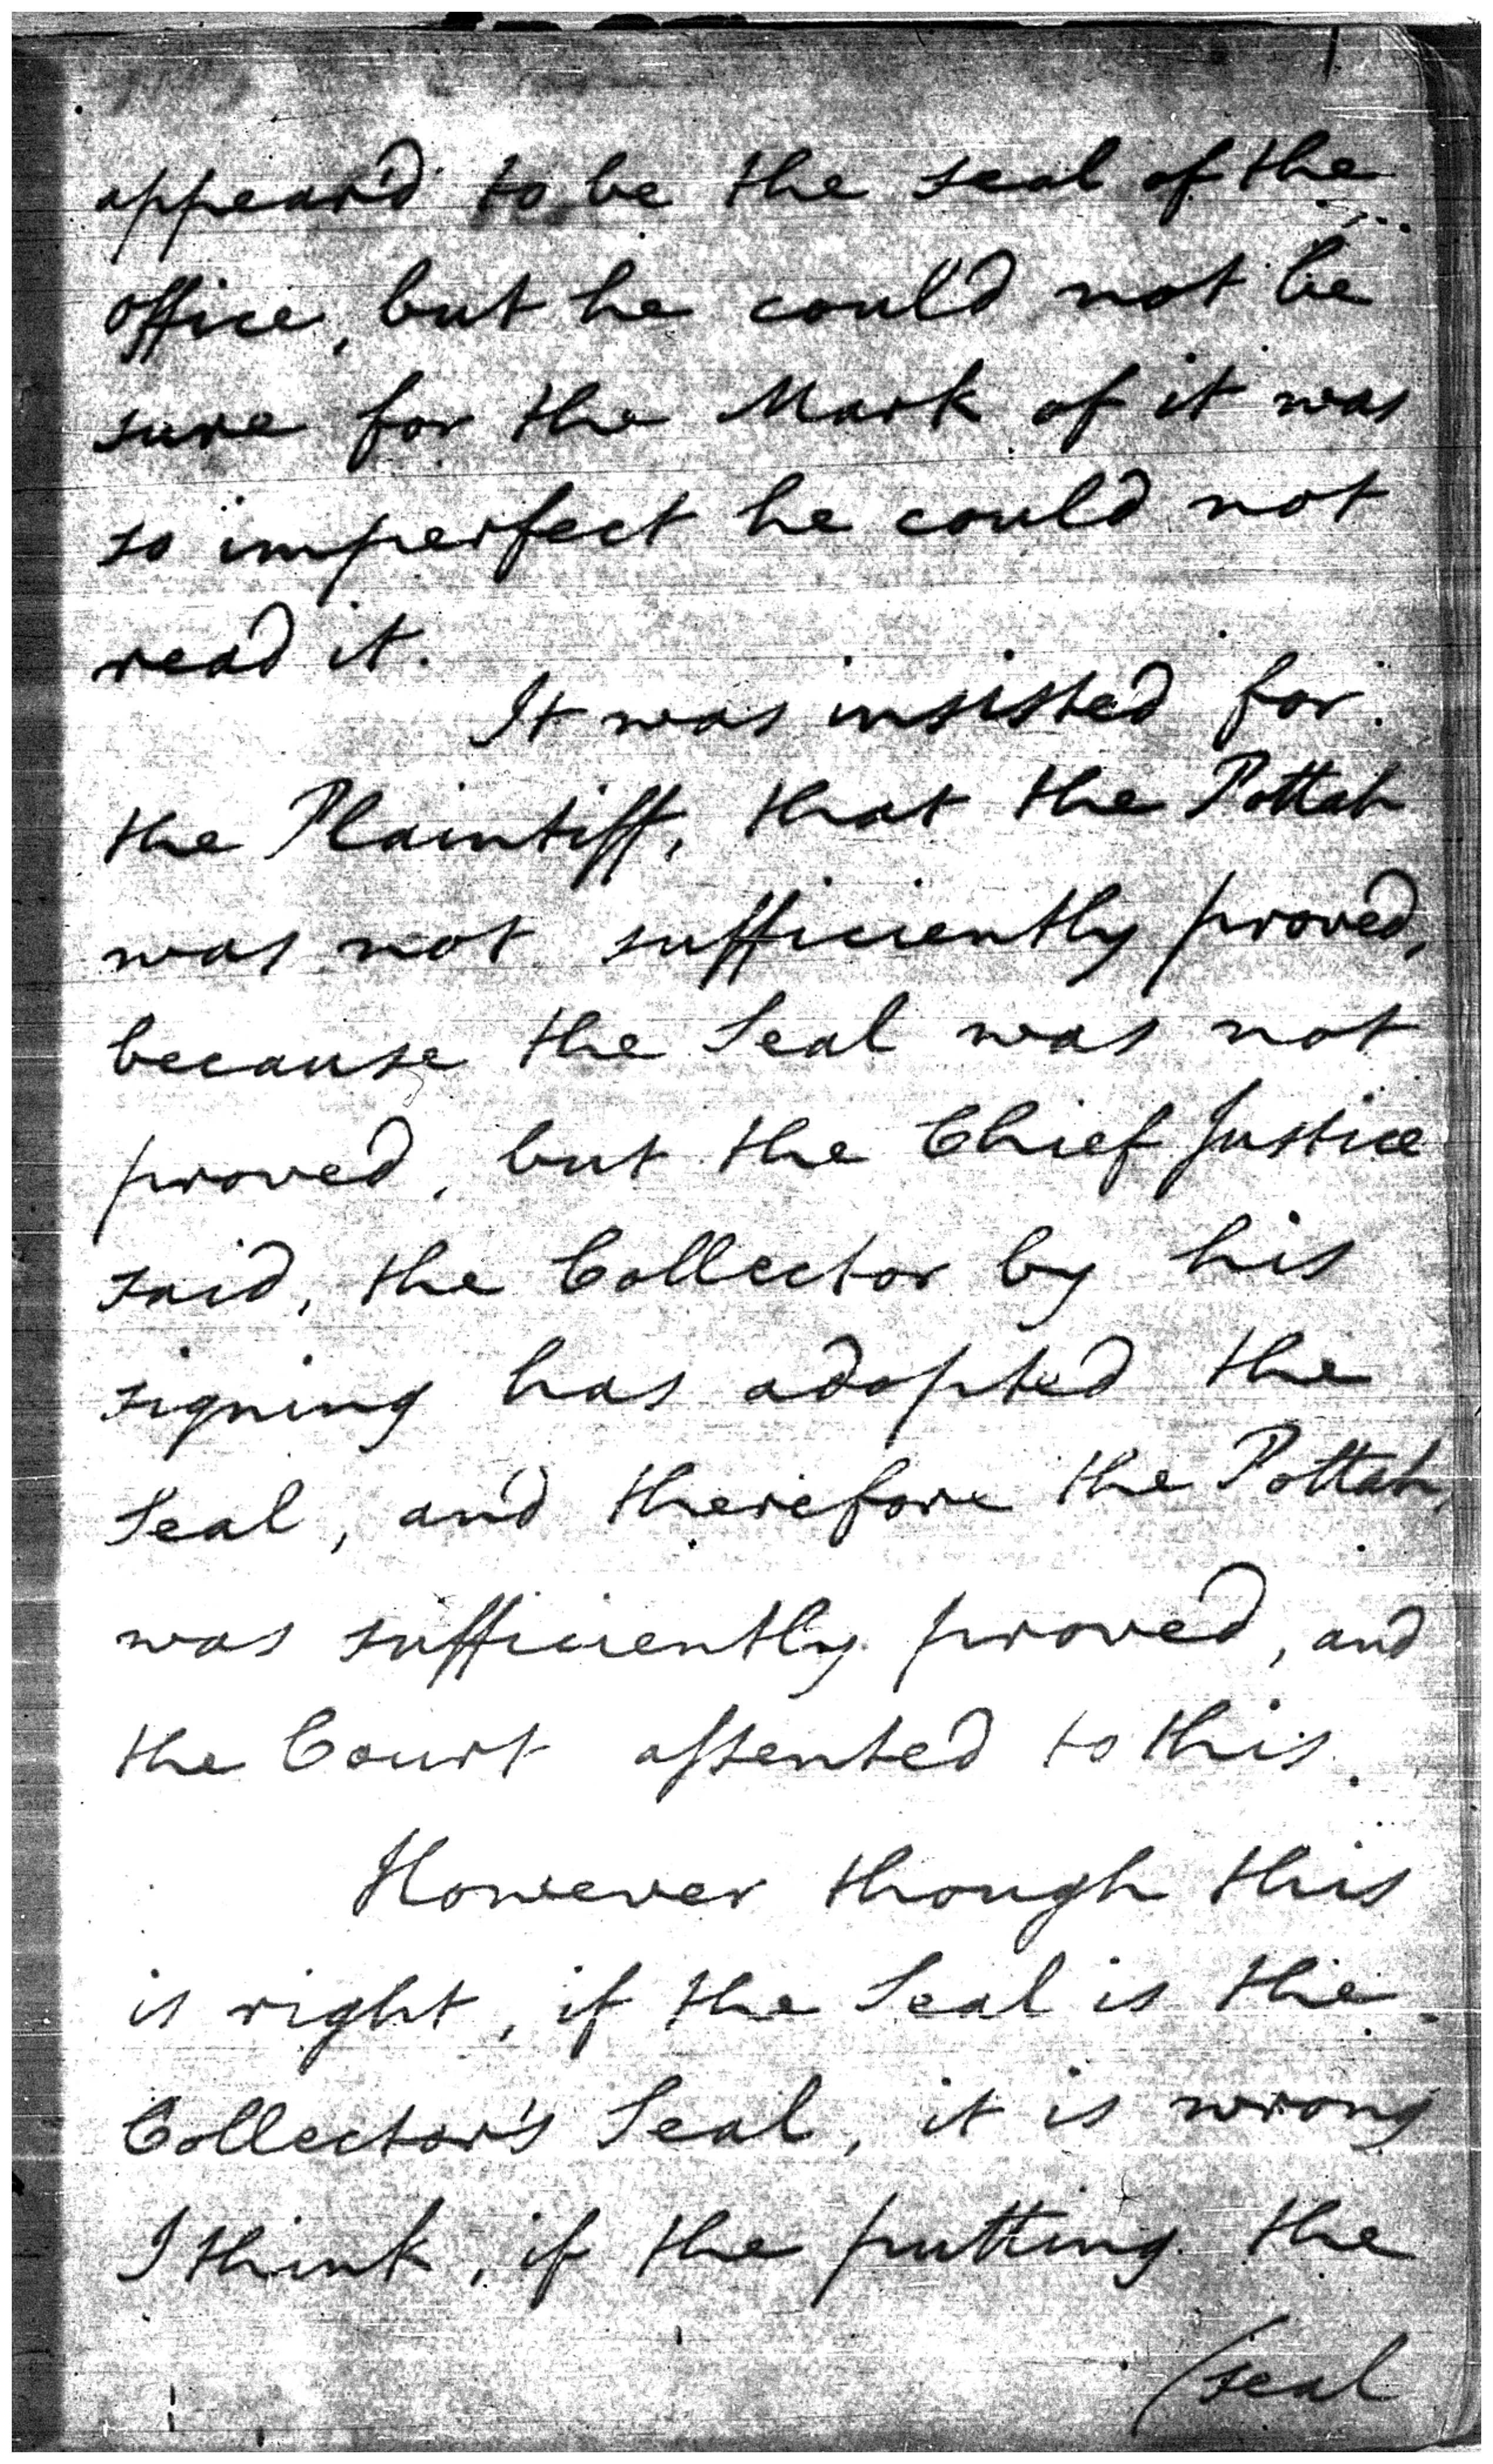 appear'd to be the seal of the
office, but he could not be
sure for the Mark of it was
so imperfect he could not
read it.
It was insisted for
the Plaintiff, that the Pottah
was not sufficiently proved,
because the Seal was not
proved, but the Chief Justice
said, the Collector by his
signing has adopted the
Seal, and therefore the Pottah
was sufficiently proved, and
the Court assented to this.
However though this
is right, if the Seal is the
Collector's Seal, it is wrong
I think, if the putting the
(seal